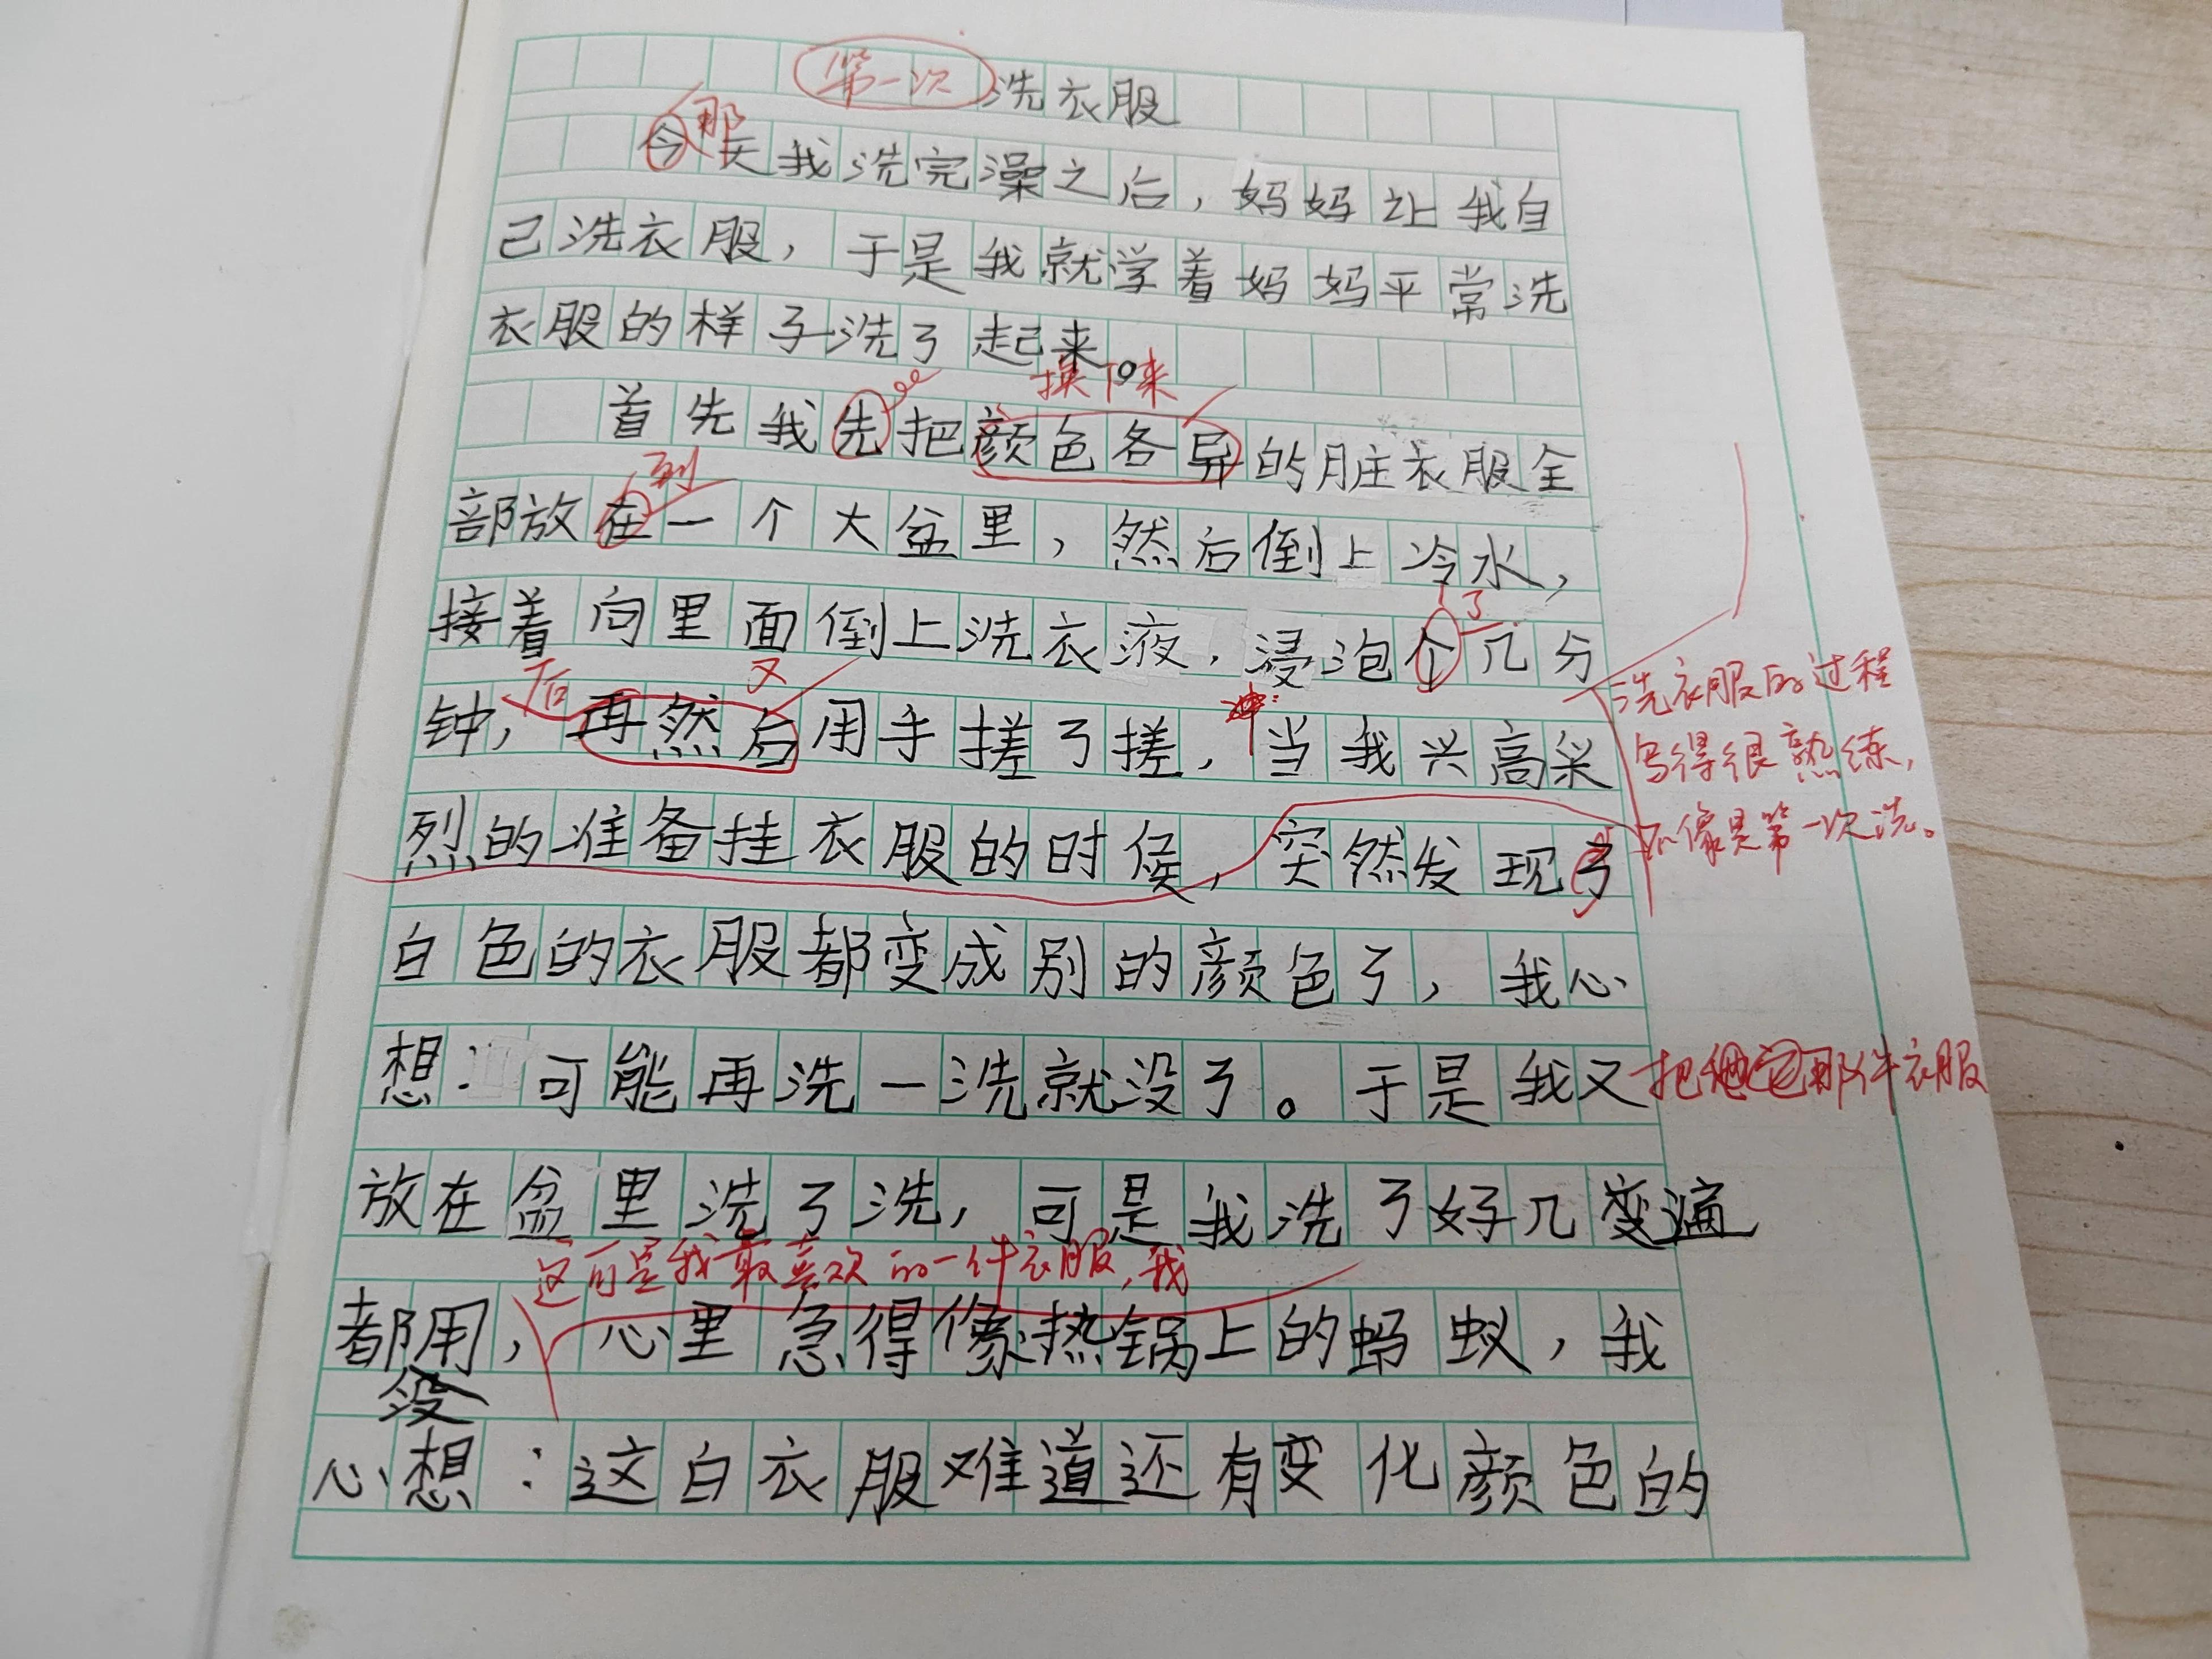 第一次洗衣服
那
今天我洗完澡之后，妈妈让我自
己洗衣服，于是我就学着妈妈平常洗
衣服的样子洗了起来。
换下来
首先我先把颜色各异的脏衣服全
到
部放在一个大盆里，然后倒上冷水，
接着向里面倒上洗衣液，浸泡个几分
了
后 又
钟，再然后用手搓了搓，当我兴高采
洗衣服的过程
写得很熟练，
不像是第一次洗。
烈的准备挂衣服的时侯，突然发现了
白色的衣服都变成别的颜色了，我心
想：可能再洗一洗就没了。于是我又
把它那件衣服
放在盆里洗了洗，可是我洗了好几变遍
这可是我最喜欢的一件衣服，我
都用，心里急得像热锅上的蚂蚁，我
没
心想：这白衣服难道还有变化颜色的